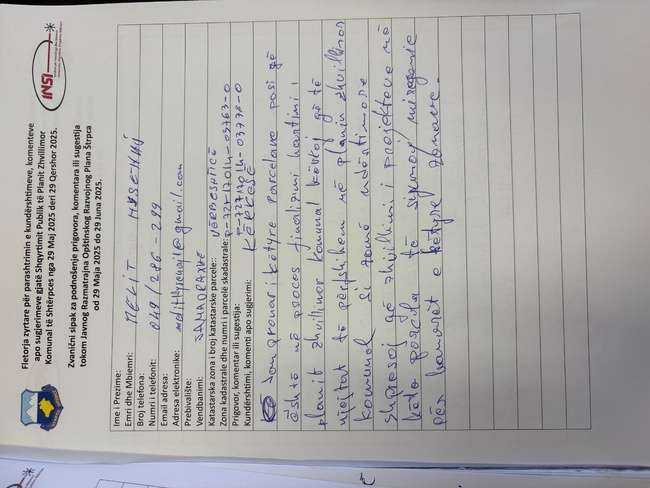 Fletorja zyrtare për parashtrimin e kundërshtimeve, komenteve
apo sugjerimeve gjatë Shqyrtimit Publik të Planit Zhvillimor
Komunal të Shtërpces nga 29 Maj 2025 deri 29 Qershor 2025.
INSI
Zvanični sipak za podnošenje prigovora, komentara ili sugestija
tokom Javnog Razmatrajna Opštinskog Razvojnog Plana Štrpca
od 29 Maja 2025 do 29 Juna 2025.
Ime i Prezime:
Emri dhe Mbiemri: MELIT HYSENAJ
Broj telefona:
Numri i telefonit: 049/286-299
Email adresa:
Adresa elektronike: melithysenaj1@gmail.com
Prebivalište:
Vendbanimi: SAMADRAXHË
Katastarska zona i broj katastarske parcele: VËRBESHTICË
Zona kadastrale dhe numri i parcelë skadastrale: P-72217014-03763-0
Prigovor, komentar ili sugestija: P-72217014-03778-0
Kundërshtimi, komenti apo sugjerimi: KËRKESË
Jam pronar i këtyre parcelave pasi që
është në proces finalizimi hartimi i
planit zhvillimor komunal kërkoj që të
njejtat të përfshihen në planin zhvillimor
komunal si zonë industriale
shpresoj që zhvillimi i projekteve në
këto parcela të sjell mirëqenie
për banorët e këtyre zonave.